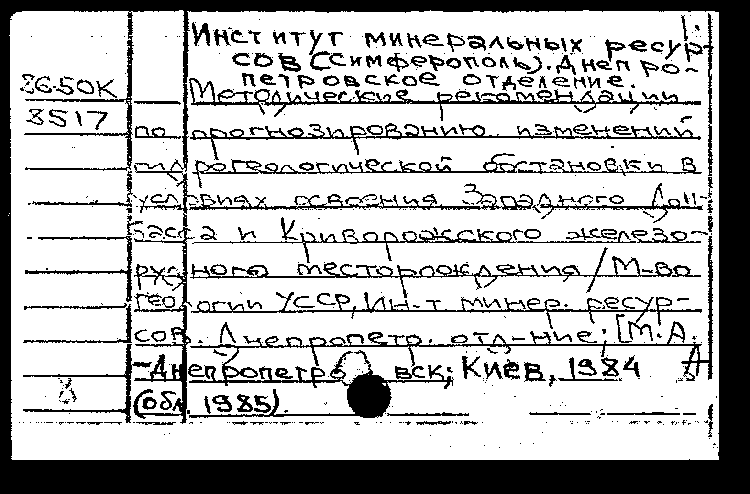 Институт минеральных ресур-
сов (Симферополь). Днепро-
петровское отделение.
8650К Методические рекомендации
8517 по прогнозированию изменений
гидрогеологической обстановки в
условиях освоения Западного Дон-
басса и Криворожского железо-
рудного месторождения / М-во
геологии УССР, Ин-т минер. ресур-
сов. Днепропетр. отд-ние; [М.А.
-Днепропетровск; Киев, 1984
8 (обл. 1985).